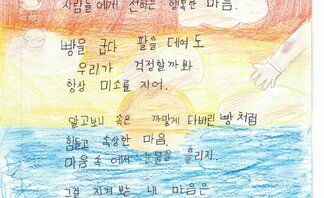 사람들에게 전하는 행복한 마음.
빵을 굽다 팔을 데여도
우리가 걱정할까봐
항상 미소를 지어.
알고보니 속은 까맣게 다버린 빵처럼
힘들고 속상한 마음.
마음 속에서 눈물을 흘리지.
그걸 지켜보는 내 마음은